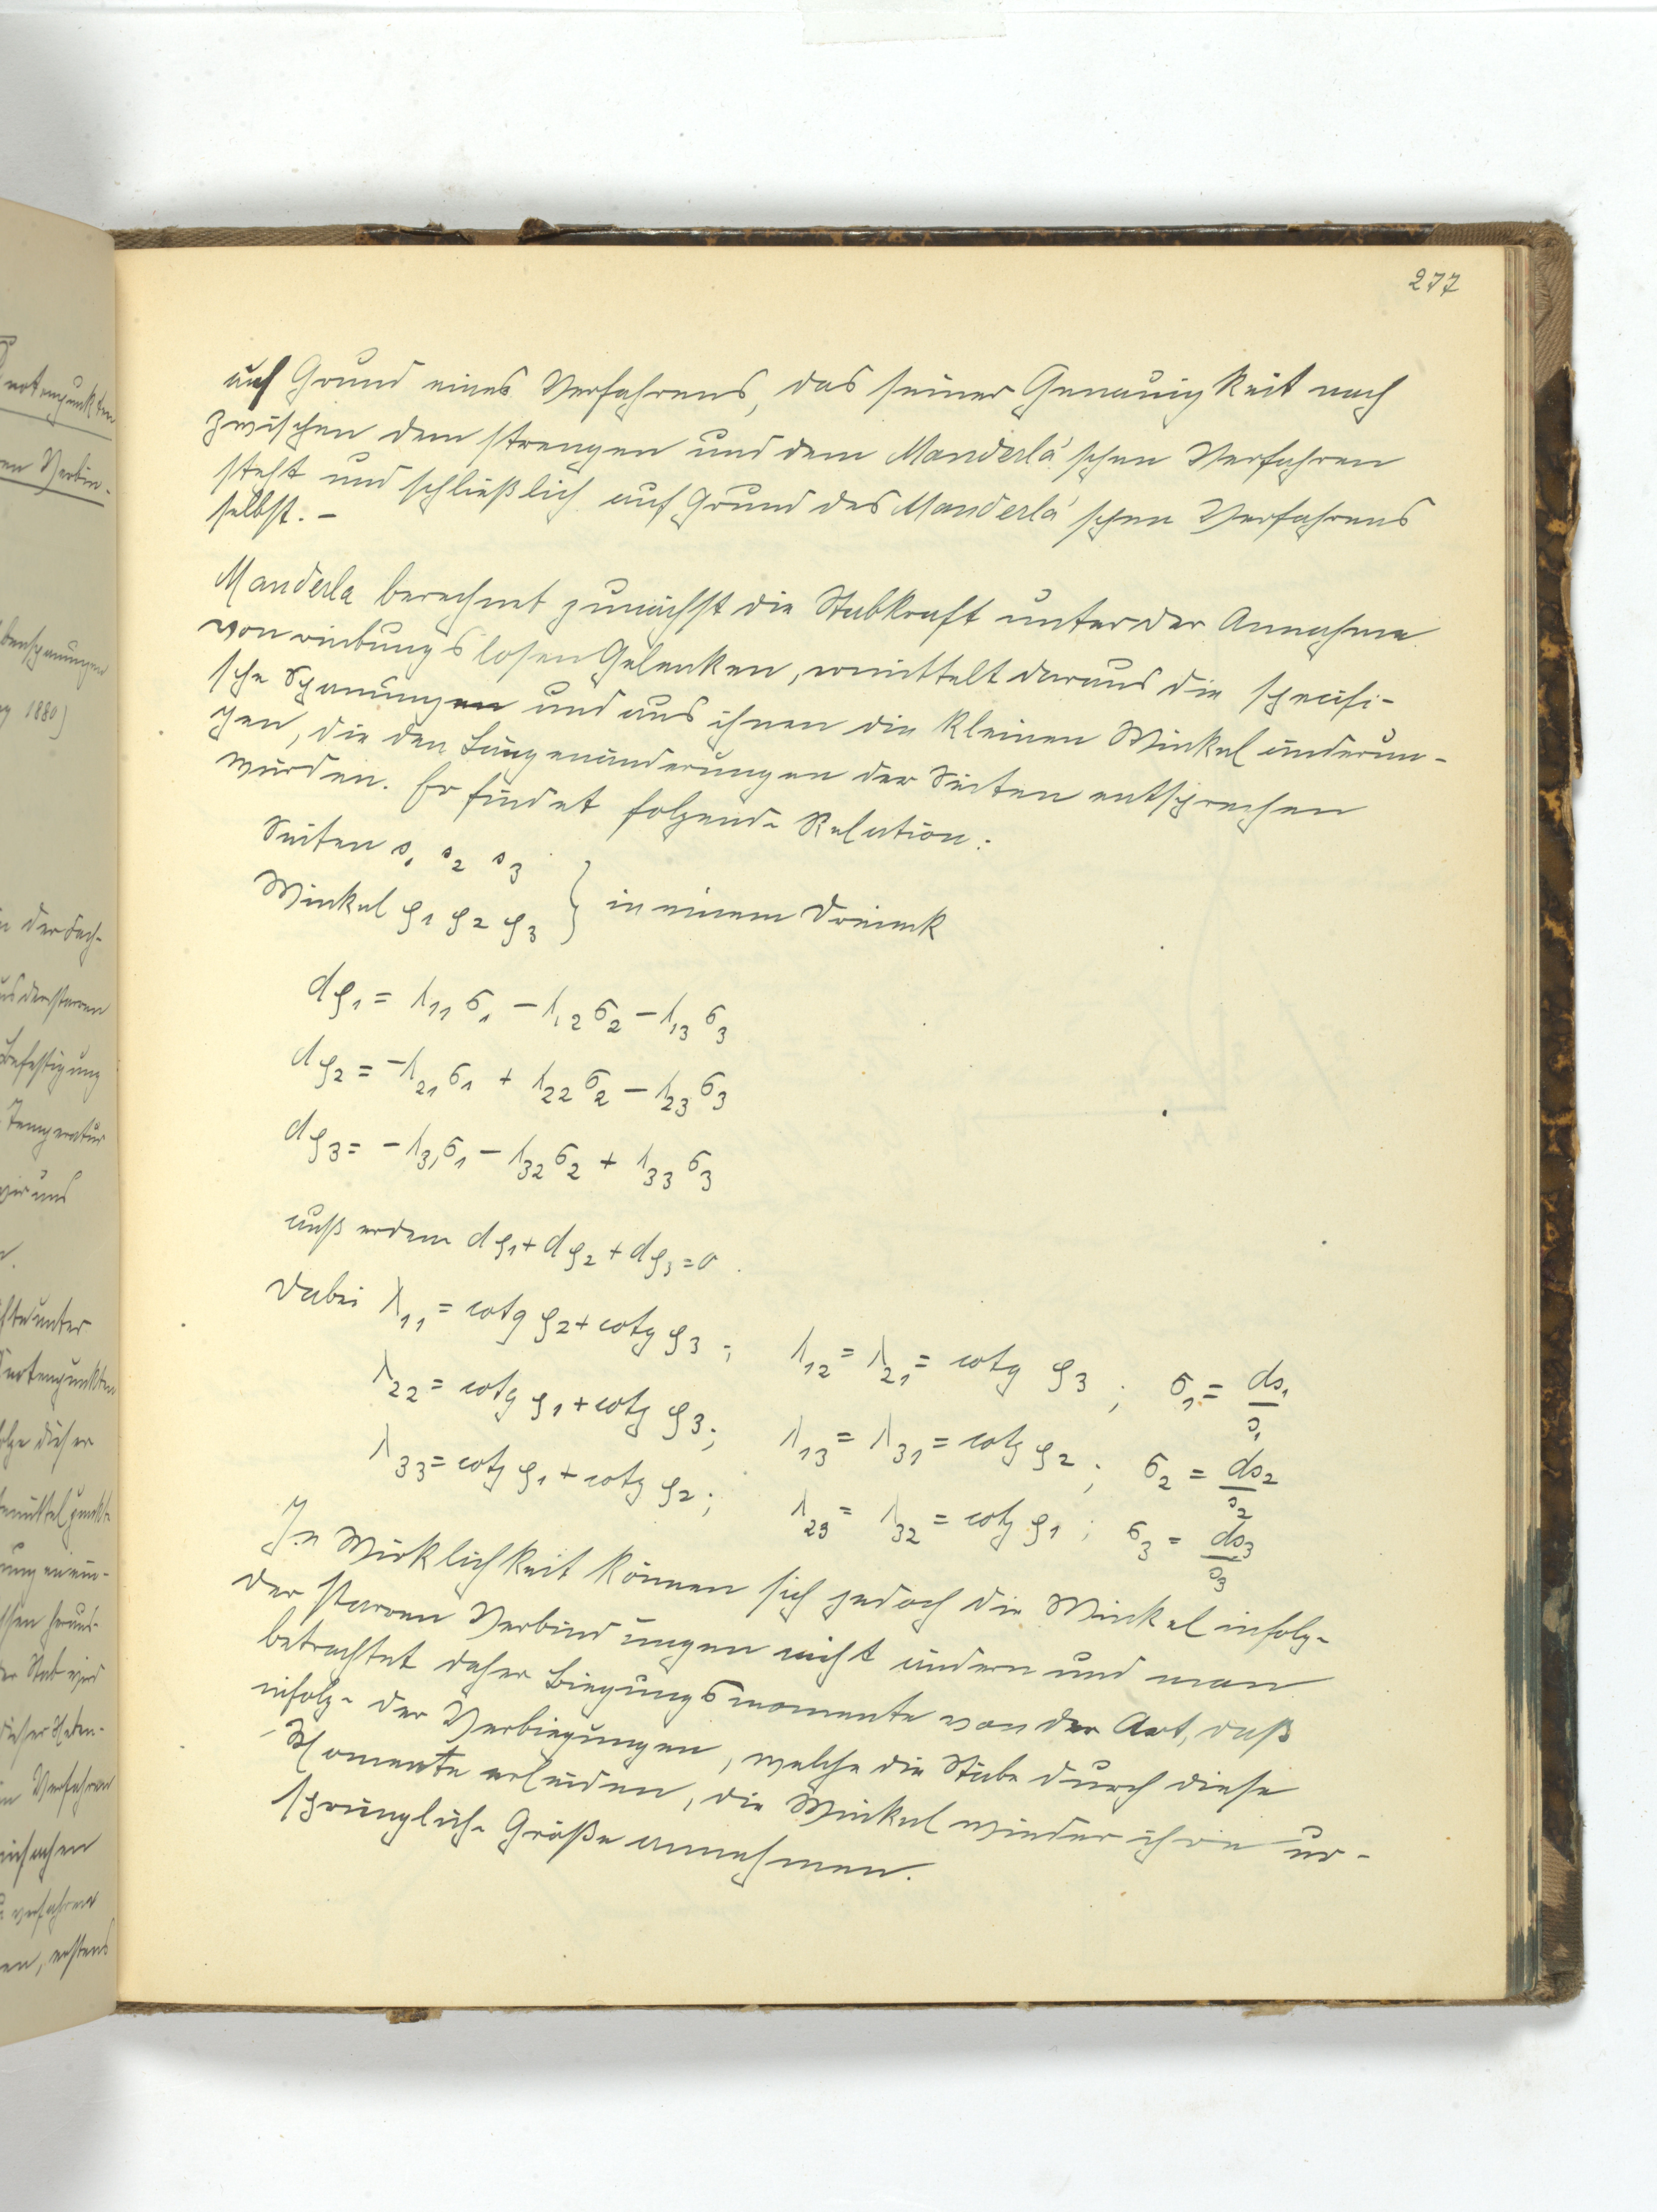 277
auf Grund eines Verfahrens, das seiner Genauigkeit nach
zwischen dem strengen und dem Manderla'schen Verfahren
steht und schließlich auf Grund des Manderla'schen Verfahrens
selbst. –
Manderla berechnet zunächst die Stabkraft unter der Annahme
von reibungslosen Gelenken, ermittelt daraus die specifi-
sche Spannungen und aus ihnen die kleinen Winkeländerun-
gen, die den Längenänderungen der Seiten entsprechen
würden. Er findet folgende Relation:
Seiten s₁ s₂ s₃
Winkel φ₁ φ₂ φ₃ } in einem Dreieck
dφ₁ = λ₁₁σ₁ − λ₁₂σ₂ − λ₁₃σ₃
dφ₂ = −λ₂₁σ₁ + λ₂₂σ₂ − λ₂₃σ₃
dφ₃ = −λ₃₁σ₁ − λ₃₂σ₂ + λ₃₃σ₃
außerdem dφ₁ + dφ₂ + dφ₃ = 0.
Dabei λ₁₁ = cotg φ₂ + cotg φ₃; λ₁₂ = λ₂₁ = cotg φ₃; σ₁ = ds₁/s₁
λ₂₂ = cotg φ₁ + cotg φ₃; λ₁₃ = λ₃₁ = cotg φ₂; σ₂ = ds₂/s₂
λ₃₃ = cotg φ₁ + cotg φ₂; λ₂₃ = λ₃₂ = cotg φ₁; σ₃ = ds₃/s₃
In Wirklichkeit können sich jedoch die Winkel infolge
der starren Verbindungen nicht ändern und man
betrachtet daher Biegungsmomente von der Art, daß
infolge der Verbiegungen, welche die Stäbe durch diese
Momente erleiden, die Winkel wieder ihre ur-
sprüngliche Größe annehmen.